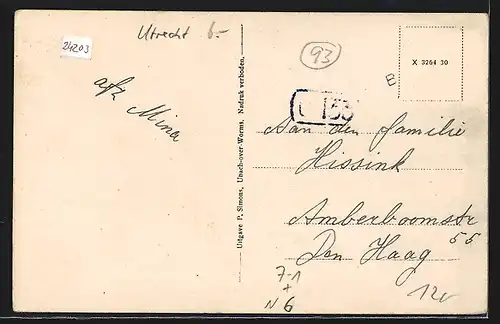 Utrecht 6.-
24203
93
X 3264 30
B
afz Mina
Aan den familie
Hissink
Amberboomstr
55
Den Haag
Uitgave P. Simons, Ubach-over-Worms. Nadruk verboden.
7-1
+
N 6